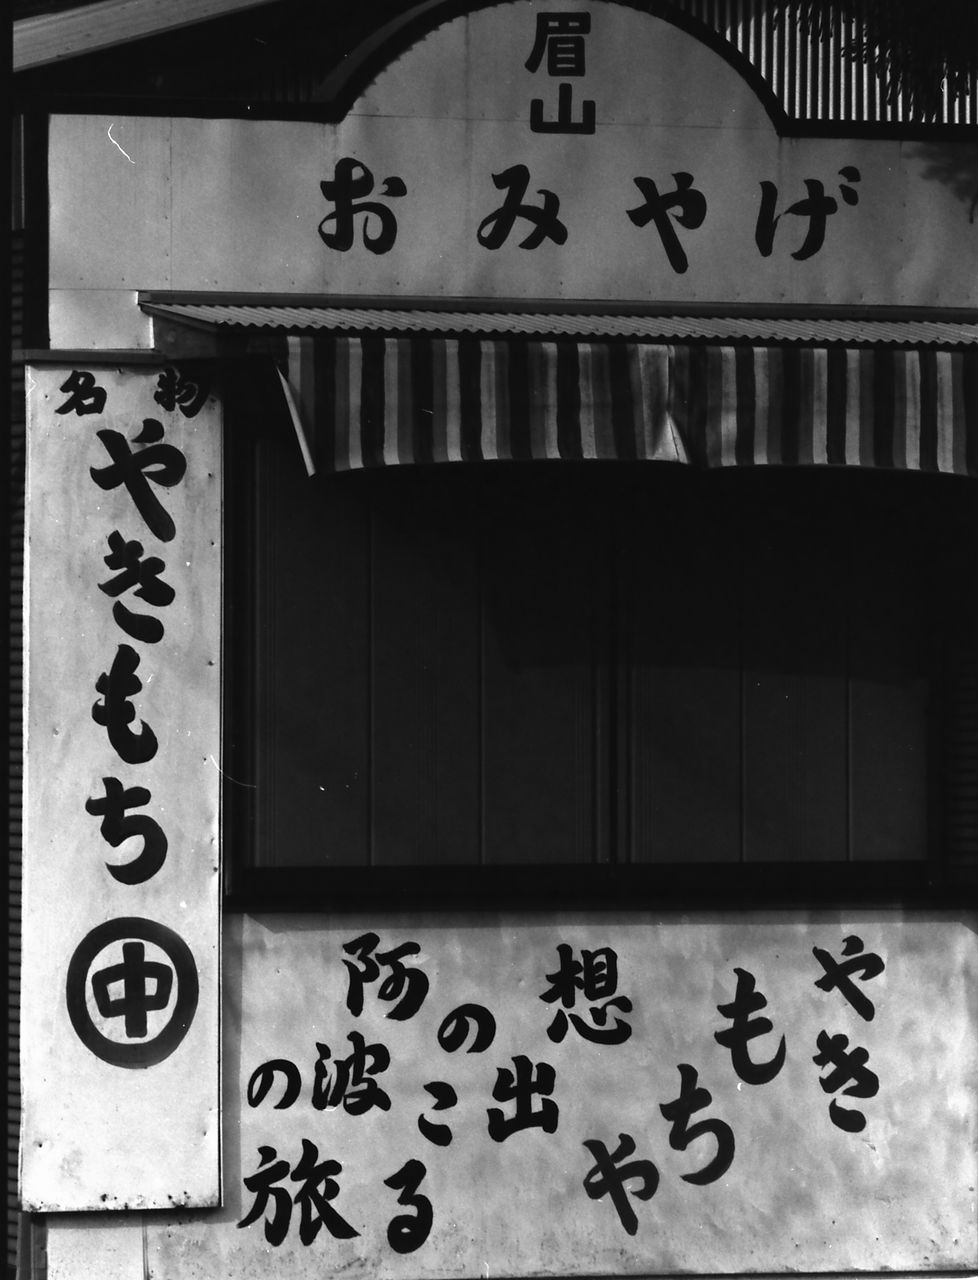 眉山
おみやげ
名物
やきもち
中
やきもちや
想出
のこる
阿波の
旅